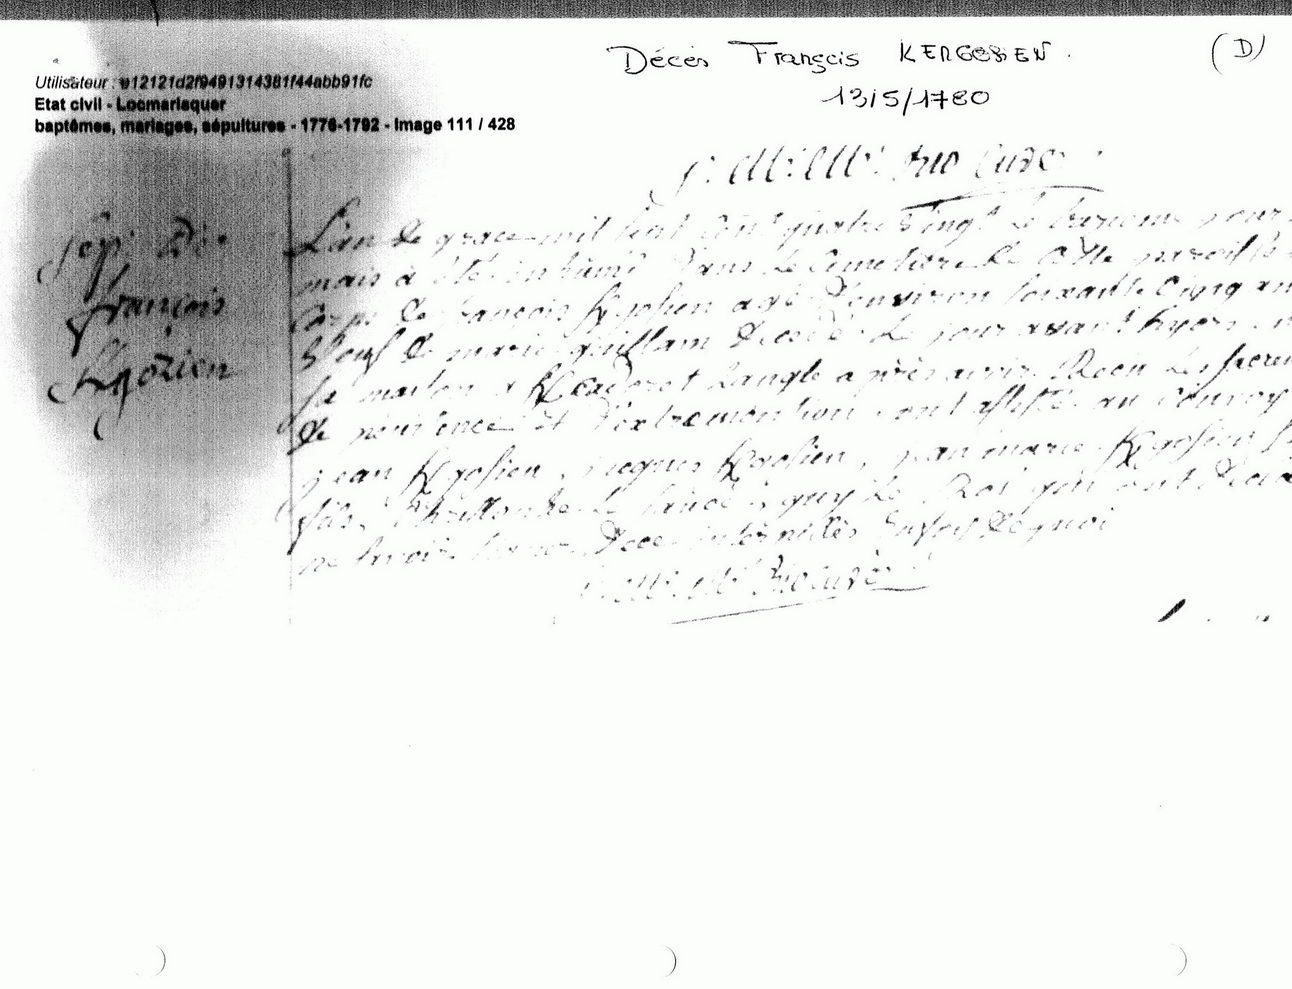 Décès François KERGOSIEN. (D)
13/5/1780
Utilisateur : e12121d2f9491314381f44abb91fc
Etat civil - Locmariaquer
baptêmes, mariages, sépultures - 1776-1792 - Image 111 / 428
Sep. De
françois
Kgozien
L'an de grace mil sept cent quatre vingt le treizieme jour
mais a été inhumé dans le Cimetiere de cette paroisse
Corps de francois Kgosien agé d'environ soixante cinq an
Veuf de marie guillam decedé le jour avant hyer
sa maison a Langle apres avoir Recu les sacrem
de penitence et d'extremonction ont assisté au convoy
jean Kgosien, jacques Kgosien, jean marie Kgosien
fils, guy Le Roi qui ont declaré
ne savoir signer de ce interpellés en foi de quoi
curé